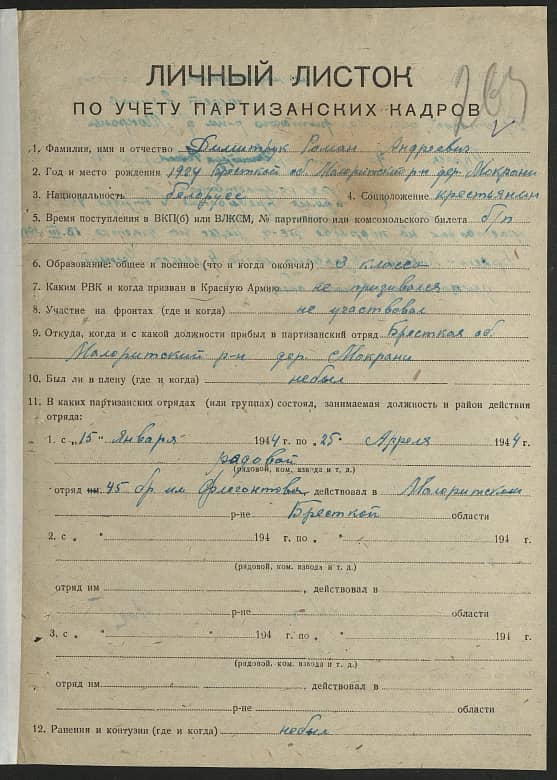 203
ЛИЧНЫЙ ЛИСТОК
ПО УЧЕТУ ПАРТИЗАНСКИХ КАДРОВ
1. Фамилия, имя и отчество Димитрук Роман Андреевич
2. Год и место рождения 1924 Бресткой об. Малоритский р-н дер. Мокрани
3. Национальность белорусс 4. Соцположение крестьянин
5. Время поступления в ВКП(б) или ВЛКСМ, № партийного или комсомольского билета б/п
6. Образование: общее и военное (что и когда окончил) 3 класса
7. Каким РВК и когда призван в Красную Армию не призывался
8. Участие на фронтах (где и когда) не участвовал
9. Откуда, когда и с какой должности прибыл в партизанский отряд Бресткая об.
Малоритский р-н дер. Мокрани
10. Был ли в плену (где и когда) небыл
11. В каких партизанских отрядах (или группах) состоял, занимаемая должность и район действия
отряда:
1. с „15" Января 1944 г. по „25" Апреля 1944 г.
рядовой
(рядовой, ком. взвода и т. д.)
отряд им. 45 бр. им Флегонтова, действовал в Малоритском
р-не Бресткой области
2. с „ " 194 г. по „ " 194 г.
(рядовой, ком. взвода и т. д.)
отряд им , действовал в
р-не области
3. с „ " 194 г. по „ " 194 г.
(рядовой, ком. взвода и т. д.)
отряд им , действовал в
р-не области
12. Ранения и контузии (где и когда) небыл